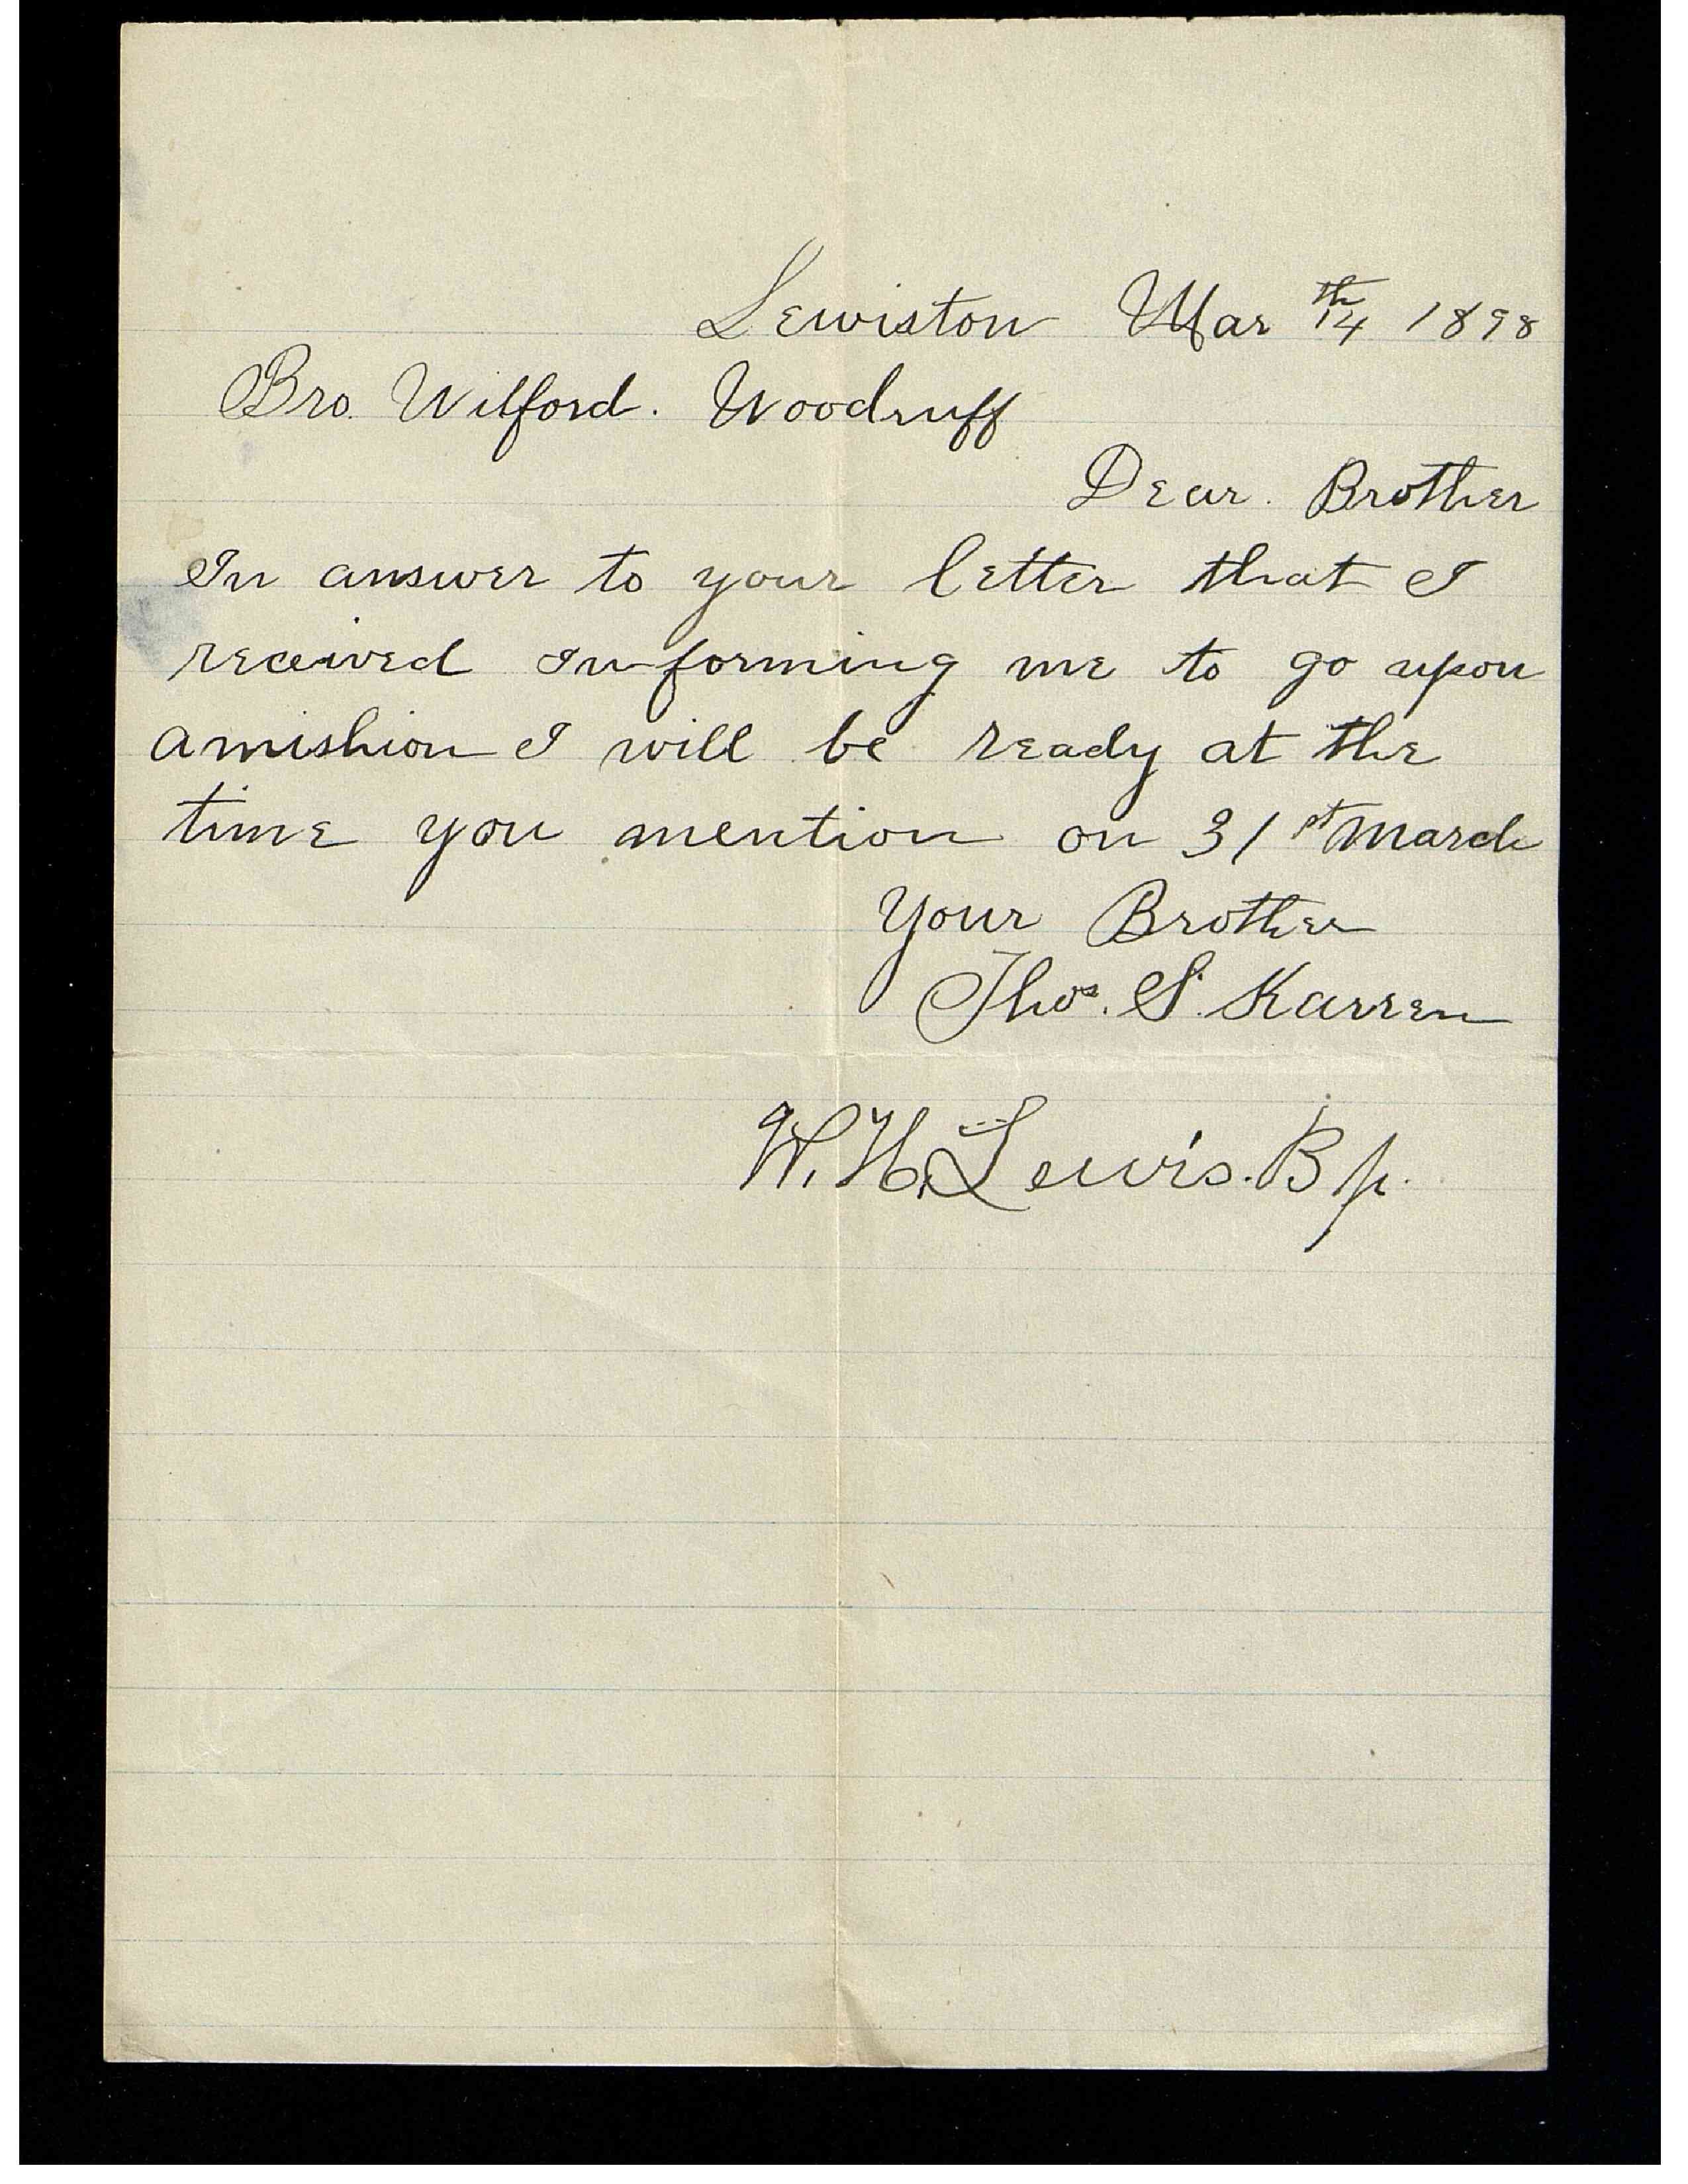 Lewiston Mar 14th 1898
Bro. Wilford. Woodruff
Dear. Brother
In answer to your letter that I
received Informing me to go upon
amishion I will be ready at the
time you mention on 31st March
Your Brother
Thos. S. Karren
W. H. Lewis. Bp.